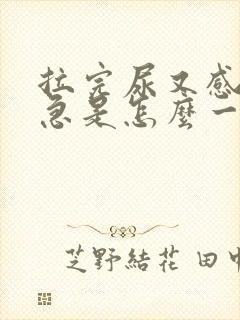 拉完尿又感
急是怎麼一
芝野結花 田中